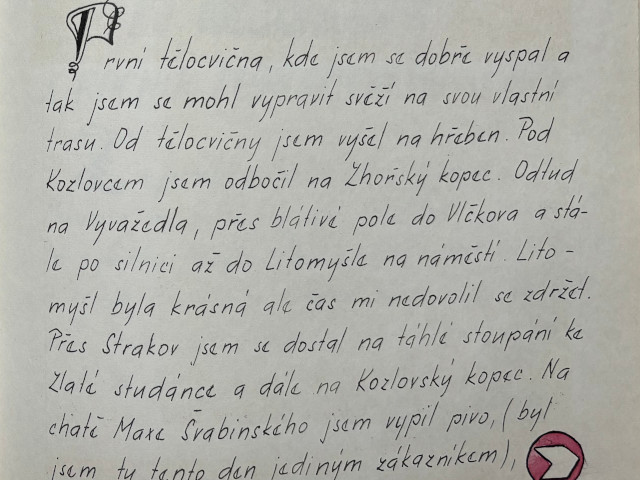 První tělocvična, kde jsem se dobře vyspal a
tak jsem se mohl vypravit svěží na svou vlastní
trasu. Od tělocvičny jsem vyšel na hřeben. Pod
Kozlovcem jsem odbočil na Zhořský kopec. Odtud
na Vyvažedla, přes blátivé pole do Vlčkova a stá-
le po silnici až do Litomyšle na náměstí. Lito-
myšl byla krásná ale čas mi nedovolil se zdržet.
Přes Strakov jsem se dostal na táhlé stoupání ke
Zlaté studánce a dále na Kozlovský kopec. Na
chatě Maxe Švabinského jsem vypil pivo, (byl
jsem tu tento den jediným zákazníkem),